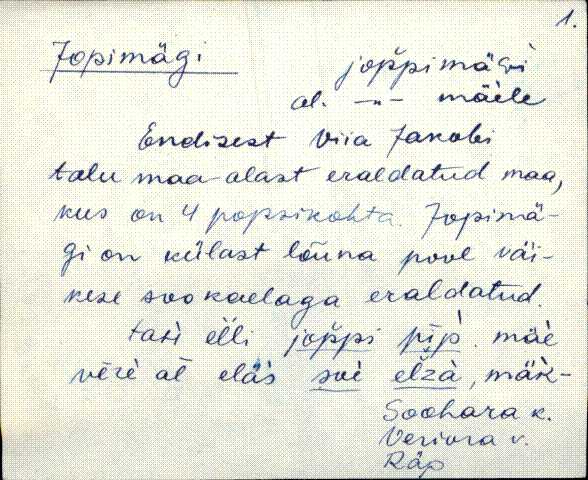 1.
Jopimägi
joppimäǵi
al. -"- mäele
Endisest Viia Jakobi
talu maa-alast eraldatud maa,
kus on 4 popsikohta. Jopimä-
gi on külast lõuna pool väi-
kese sookaelaga eraldatud.
joppi mäe
Soohara k.
Veriora v.
Räp